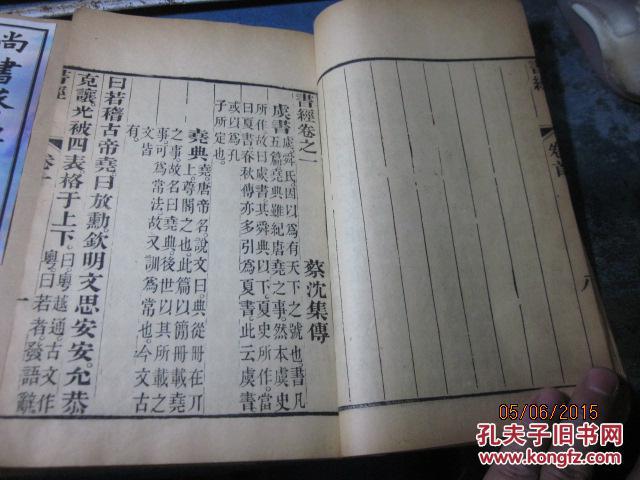 書經卷之一
蔡沈集傳
虞書 虞舜氏因以爲有天下之號也書凡
五篇堯典雖紀唐堯之事然本虞史
所作故曰虞書其舜典以下夏史所作當
曰夏書春秋傳亦多引爲夏書此云虞書
或以爲孔
子所定也
堯典 堯唐帝名說文曰典從冊在丌
上尊閣之也此篇以簡冊載堯
之事故名曰堯典後世以其所載之
事可爲常法故又訓爲常也今文古
文皆
有
曰若稽古帝堯曰放勳欽明文思安安允恭
克讓光被四表格于上下 曰粵越通古文作
粵曰若者發語辭
書經
卷一
一
卷首
八
尚書
05/06/2015
孔夫子旧书网
www.kongfz.com